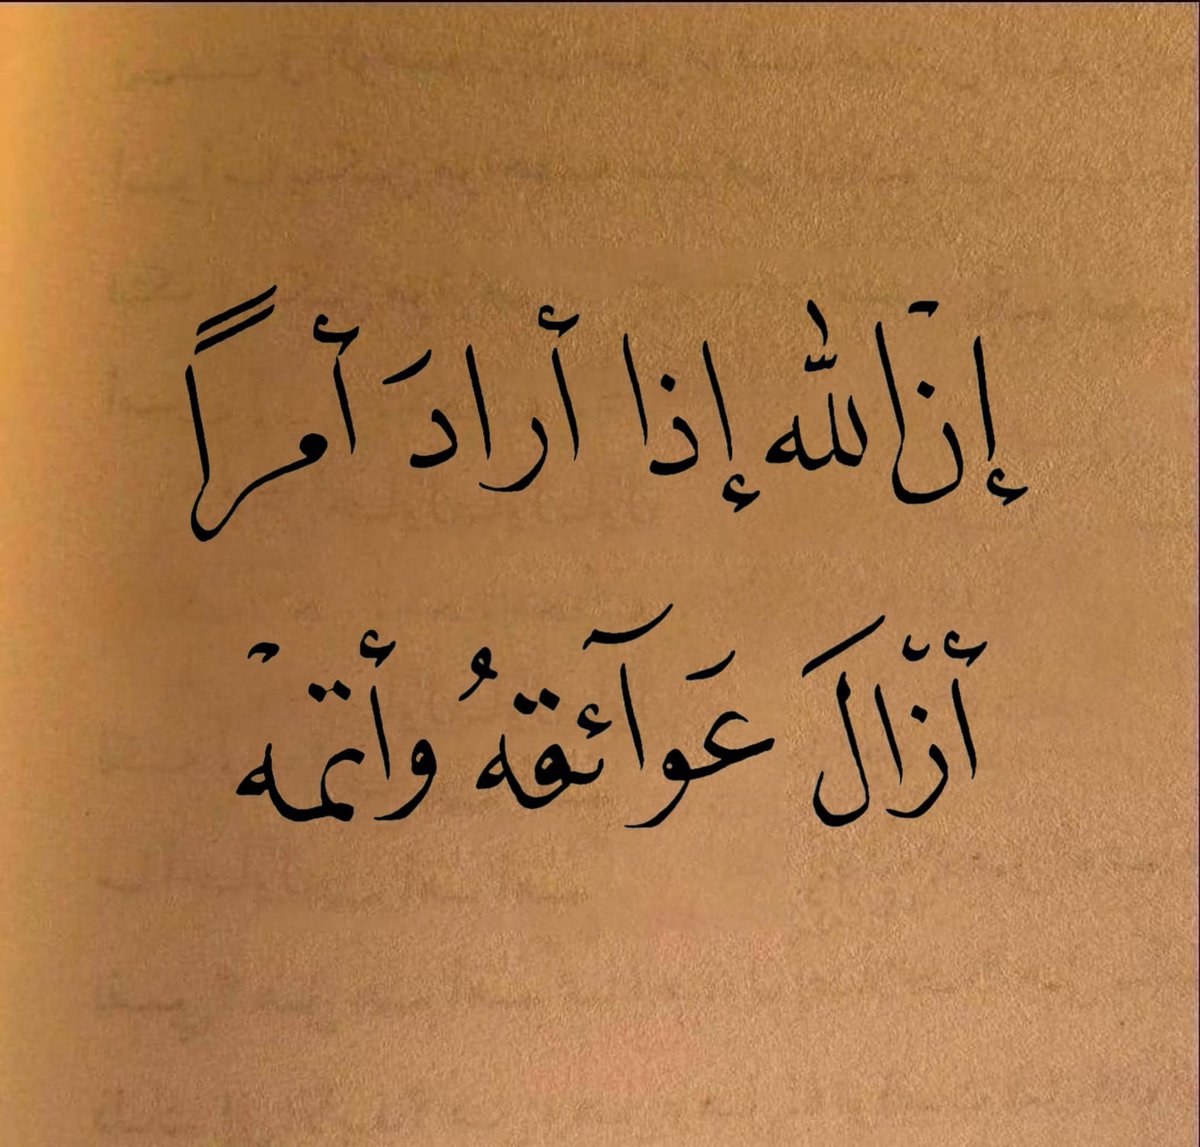 إنّ الله إذا أرادَ أمراً
أزّالَ عَوآئقهُ وأتمهْ